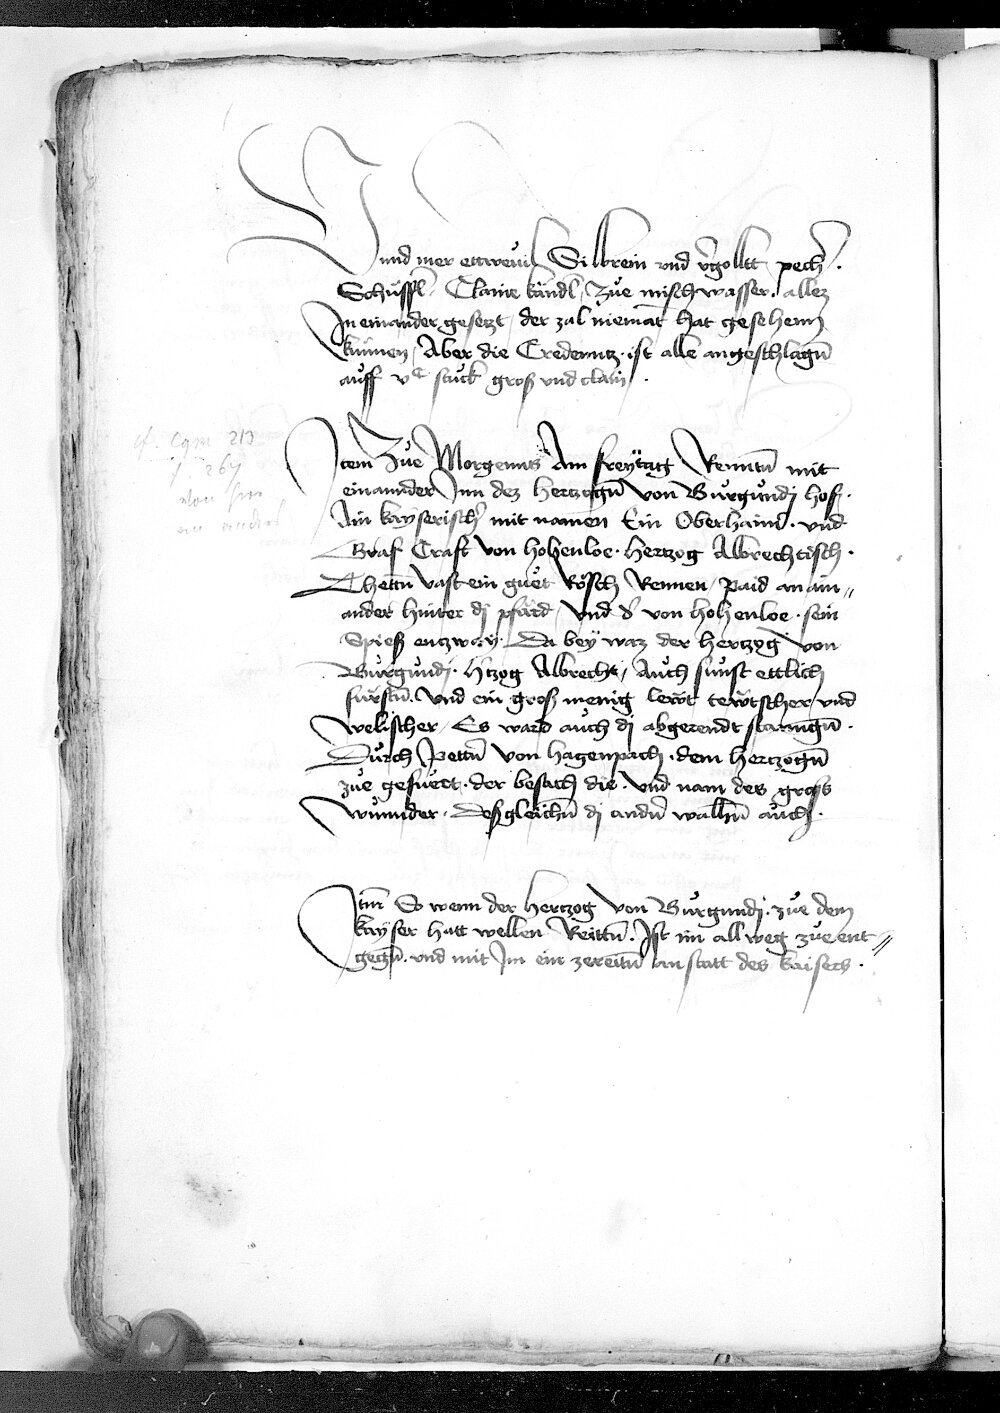 Vnnd mer ettweuil Silbrein vnd v̄gollt pecħ.
Schüssl̄ Claine kandl̄ / Zue misch wasser. allez
In einander gesetzt / der zal niemāt hat gesehenn
künnen / Aber die Credenntz. ist alle angeschlagn̄
auff vᶜ stuck groß vnd clain.
Item Zue Morgenns Am freÿtag Renntn̄ mit
einannder Inn dez hertzogn̄ von Burgundj hof.
Ain kayseriscħ mit namen Ein Oberhaimer. vnd
Graf Craft von hohenloe. hertzog Albrechtisch.
Thettn̄ vast ein guet Rösch Rennen / paid an ain //
ander hinter dj pfärd / vnd d̄ von hohenloe. sein
Spieß entzway. Da beÿ waz der hertzog von
Burgundj. H̄tzog Albrecht / Auch sunst ettlich
fürstn̄. vnd ein groß menig lewt tewtscher vnd
welischer / Es ward auch dj abgerendt starngn̄.
Durch Pettn̄ von hagenpach. dem hertzogn̄
zue gefuert. der besach die. vnd nam des groß
wunnder. Deßgleichn̄ dj andn̄ walhn̄ auch.
Itm̄ So wenn der hertzog von Burgundj. zue dem
kayser hatt wellen Reittn̄. Ist im allweg zue ent //
gegn̄. vnd mit Im ein zereitn̄ an statt des kaisers.
cf. Cgm 213
f. 267
von hin